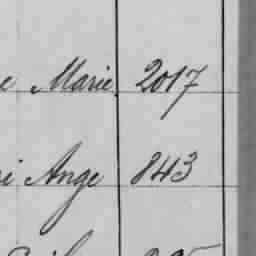 e Marie 2017
i Ange 843